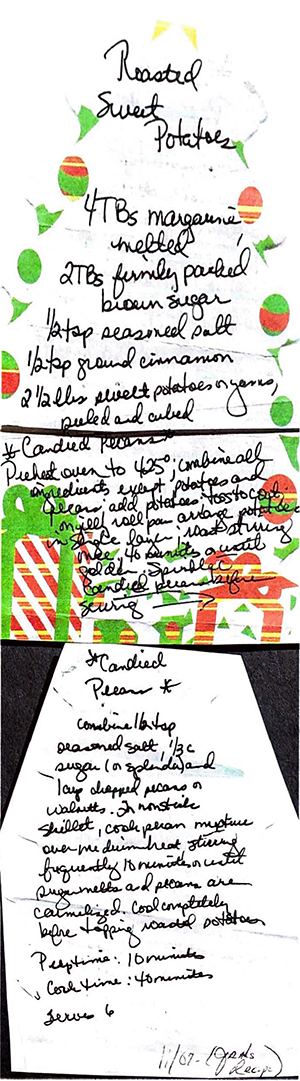 Roasted
Sweet
Potatoes
4 TBs margarine,
melted
2 TBs firmly packed
brown sugar
1/2 tsp seasoned salt
1/2 tsp ground cinnamon
2 1/2 lbs sweet potatoes or yams,
peeled and cubed
*Candied Pecans*
Preheat oven to 425°; combine all
ingredients except potatoes and
pecans; add potatoes; toss to coat.
On jelly roll pan arrange potatoes
in single layer; roast stirring
once 40 minutes or until
golden. Sprinkle
candied pecans before
serving
*Candied
Pecans*
Combine 1/2 tsp
seasoned salt, 1/3 c
sugar (or splenda) and
1 cup chopped pecans or
walnuts. In nonstick
skillet, cook pecan mixture
over medium heat, stirring
frequently 10 minutes or until
sugar melts and pecans are
carmelized. Cool completely
before topping roasted potatoes
Prep time: 10 minutes
Cook time: 40 minutes
Serves 6
11/07-